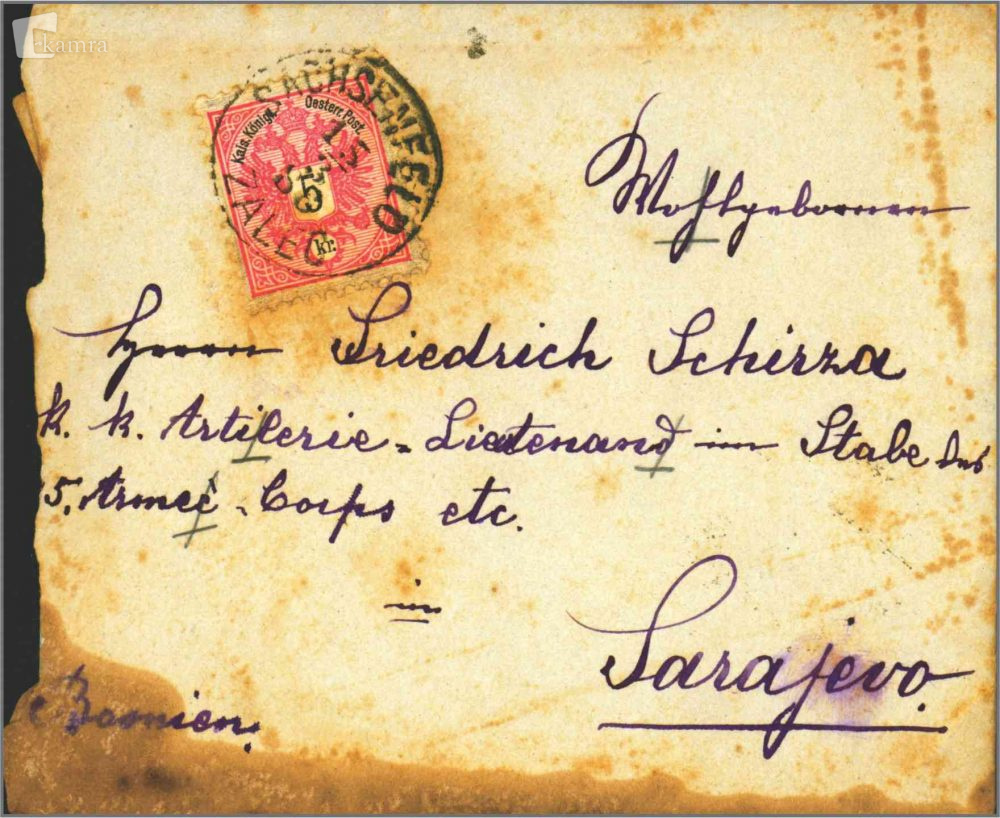 kamra
SACHSENFELD
ŽALEC
Kais. Königl. Oesterr. Post.
5
kr.
Wohlgebornen
Herrn Friedrich Schirza
k. k. Artilerie-Lieutenand im Stabe des
5. Armee-Corps etc.
in
Sarajevo.
Bosnien.